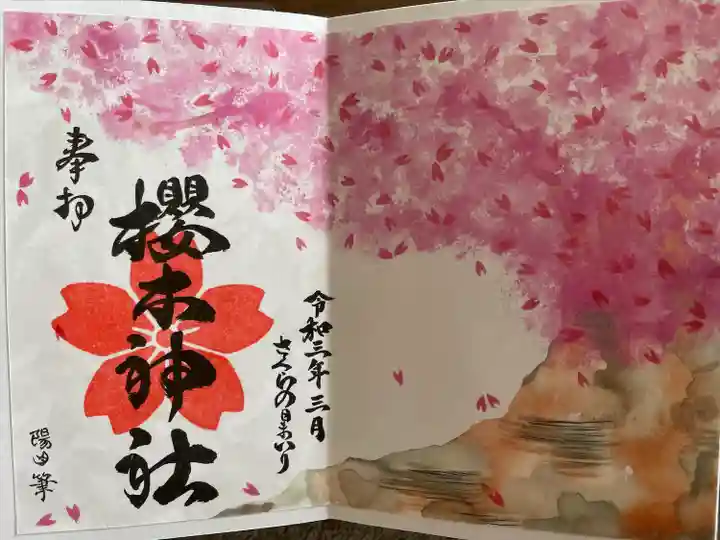 奉拝
櫻木神社
令和三年三月
さくらの日まいり